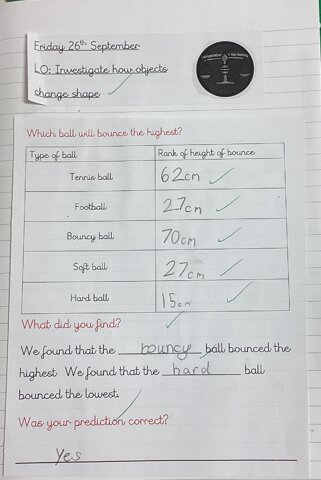 Friday 26th September
LO: Investigate how objects
change shape
Which ball will bounce the highest?
Type of ball Rank of height of bounce
Tennis ball 62cm
Football 27cm
Bouncy ball 70cm
Soft ball 27cm
Hard ball 15cm
What did you find?
We found that the bouncy ball bounced the
highest We found that the hard ball
bounced the lowest.
Was your prediction correct?
Yes